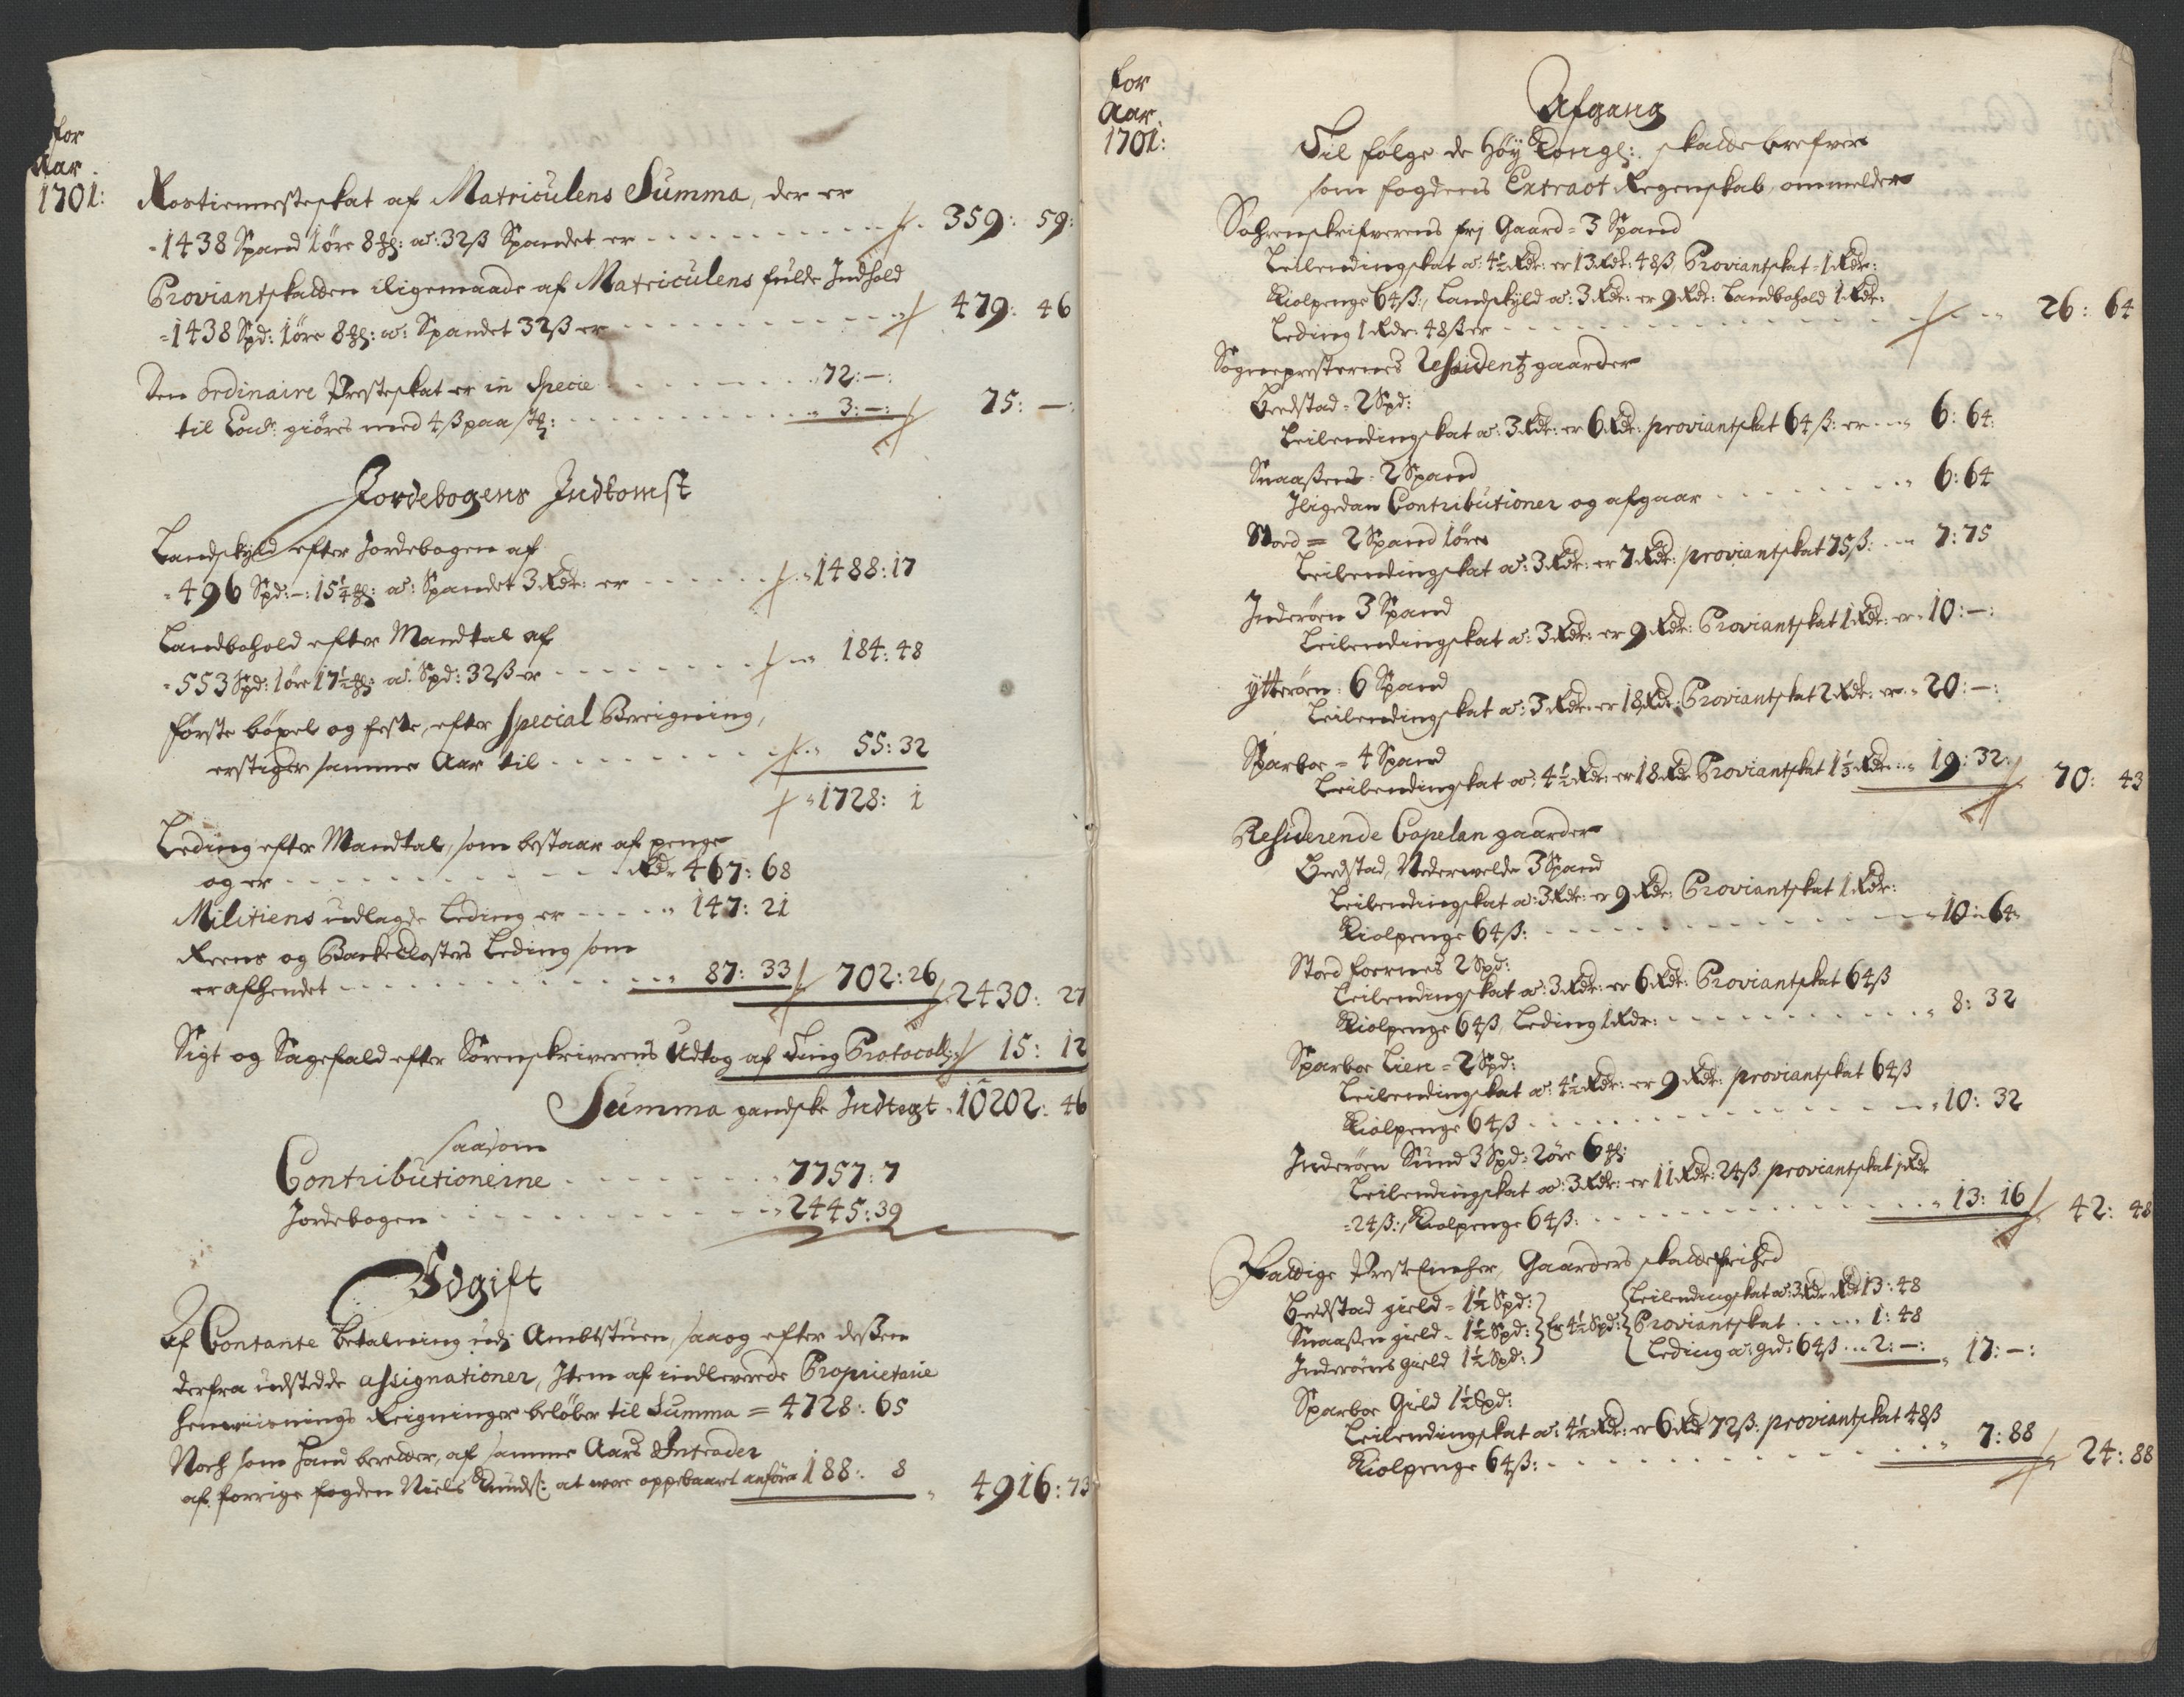 for
Aar
1701:
Rostiennesteskat af Matriculens Summa, der er
-1438 Spand 1 øre 8 : a: 32 ß Spandet er 359: 59:
Proviantskatten iligemaade af Matriculens fulde Indhold
=1438 Spd: 1 øre 8 : a: Spandet 32 ß er 479: 46
Den ordinaire Presteskat er in Specie 72:—:
til giøres med 4 ß paa 3:—: 75: —:
Jordebogens Indkomst
Landskyld efter Jordebogen af
=496 Spd:—: 15¼ : a: Spandet 3 Rdr: er 1488: 17
Landbohold efter Mandtal af
=553 Spd: 1 øre 17½ : a: Spd: 32 ß er 184: 48
Første bøxel og feste, efter Special Bereigning,
erstiger samme Aar til 55: 32
1728: 1
Leding efter Mandtal, som bestaar af penge
og er Rdr 467: 68
Militiens udlagde Leding er 147: 21
Reens og Backe Closters Leding som
er afhendet 87: 33 702: 26 2430: 27
Sigt og Sagefald efter Sorenskriverens Udtog af Ting Protocoll: 15: 12
Summa gandske Indtegt 10202: 46
saasom
Contributionerne 7757: 7
Jordebogen 2445: 39
Udgift
Af Contante betalning udj Ambtstuen, saaog efter deßen
derfra udstedde assignationer, Item af indleverede Proprietarie
henviisnings Reigninger beløber til Summa = 4728: 65
Noch som hand beretter, af samme Aars Intrader
af forrige fogden Niels at were oppebaaret anføre 188: 8 4916: 73
for
Aar
1701:
Afgang
Til følge de Høy Kongl: skattebrefver
som fogdens Extract Regenskab ommelder
Sohrenskrifverens frj Gaard = 3 Spand
Leilendingskat a: 4½ Rdr: er 13 Rdr: 48 ß, Proviantskat = 1 Rdr:
Kiolpenge 64 ß:, Landskyld a: 3 Rdr: er 9 Rdr: Landbohold 1 Rdr:
Leding 1 Rdr: 48 ß er 26: 64
Sognepresternes Residentz gaarder
Beedstad = 2 Spd:
Leilendingskat a: 3 Rdr: er 6 Rdr: proviantskat 64 ß: er 6: 64:
Snaaßens: 2 Spand
Iligedan Contributioner og afgaar 6: 64
Stord = 2 Spand 1 øre
Leilendingskat a: 3 Rdr: er 7 Rdr: proviantskat 75 ß: 7: 75
Inderøen 3 Spand
Leilendingskat a: 3 Rdr: er 9 Rdr: Proviantskat 1 Rdr: er 10:—:
Ytterøen: 6 Spand
Leilendingskat a: 3 Rdr: er 18 Rdr: Proviantskat 2 Rdr: er 20:—:
Sparboe = 4 Spand
Leilendingskat a: 4½ Rdr: er 18 Rdr Proviantskat 1⅓ Rdr: 19: 32: 70: 43
Residerende Capelan gaarder
Beedstad, Nedervelde 3 Spand
Leilendingskat a: 3 Rdr: er 9 Rdr: Proviantskat 1 Rdr:
Kiolpenge 64 ß: 10: 64
Stord foernes 2 Spd:
Leilendingskat a: 3 Rdr: er 6 Rdr: Proviantskat 64 ß
Kiolpenge 64 ß, Leding 1 Rdr: 8: 32
Sparboe Lien = 2 Spd:
Leilendingskat a: 4½ Rdr: er 9 Rdr: proviantskat 64 ß
Kiolpenge 64 ß 10: 32
Inderøen Sund 3 Spd: 2 øre 6 :
Leilendingskat a: 3 Rdr: er 11 Rdr: 24 ß proviantskat 1 Rdr
=24 ß:, Kiolpenge 64 ß: 13: 16 42: 48
Fattige PresteEncher, Gaarders skattefrihed
Beedstad gield = 1½ Spd: Leilendingskat a: 3 Rdr Rdr 13: 48
Snaaßen gield = 1½ Spd: Er 4½ Spd: Proviantskat 1: 48
Inderøens gield 1½ Spd: Leding a: grd: 64 ß 2:—: 17:—:
Sparboe Gield 1½ Spd:
Leilendingskat a: 4½ Rdr: er 6 Rdr 72 ß: proviantskat 48 ß
Kiolpenge 64 ß: 7: 88 24: 88